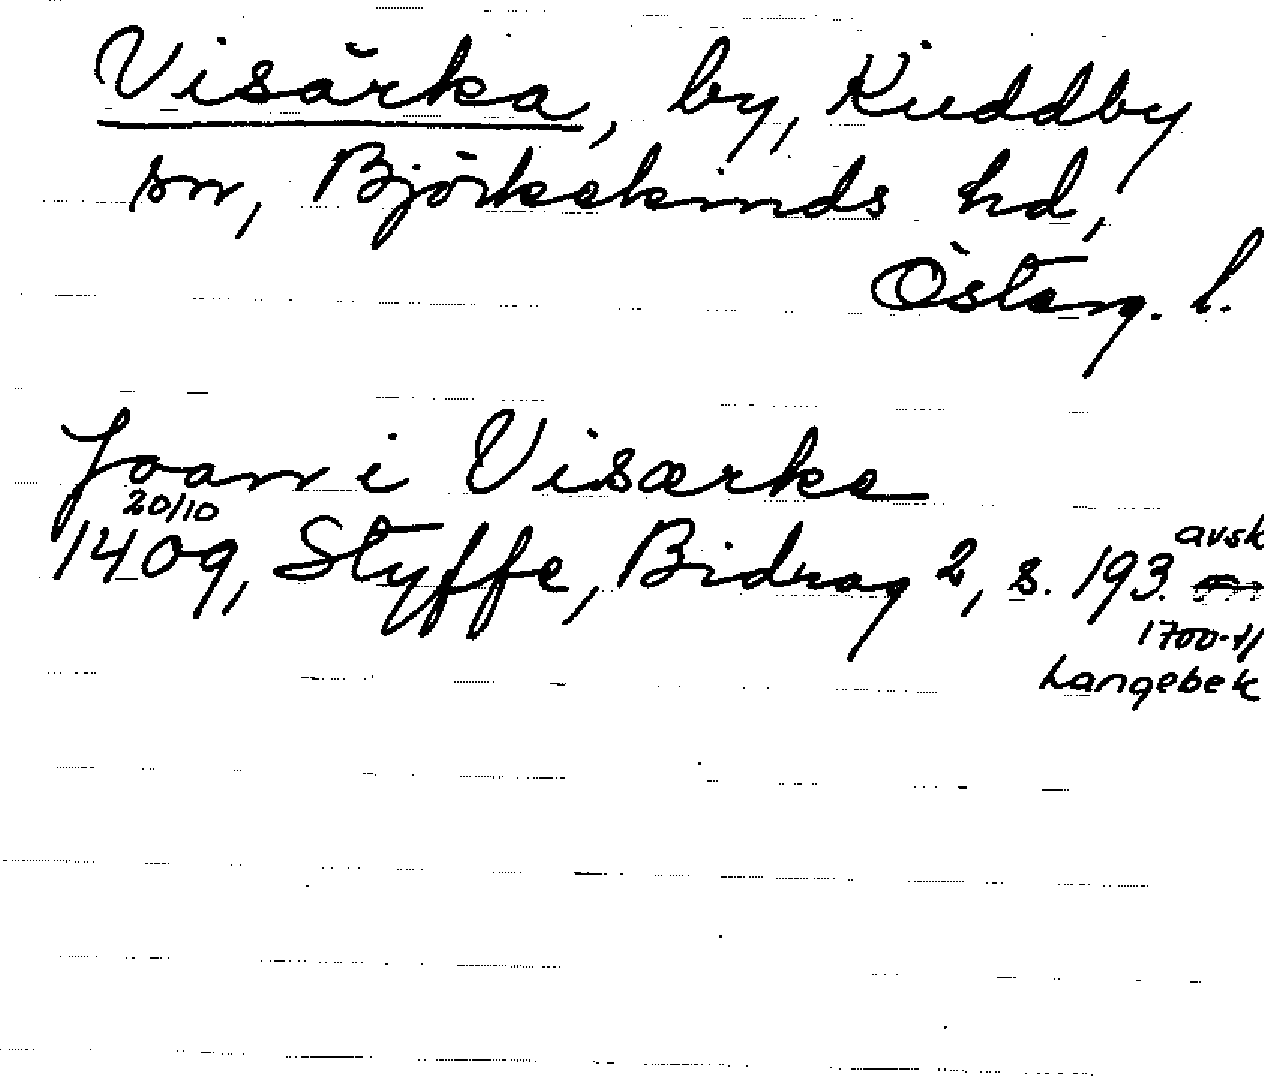 Visärka, by, Kuddby
sn, Björkekinds hd,
Österg. l.
Joan i Visærke
20/10
1409, Styffe, Bidrag 2, s. 193. avsk
1700-t/
Langebek